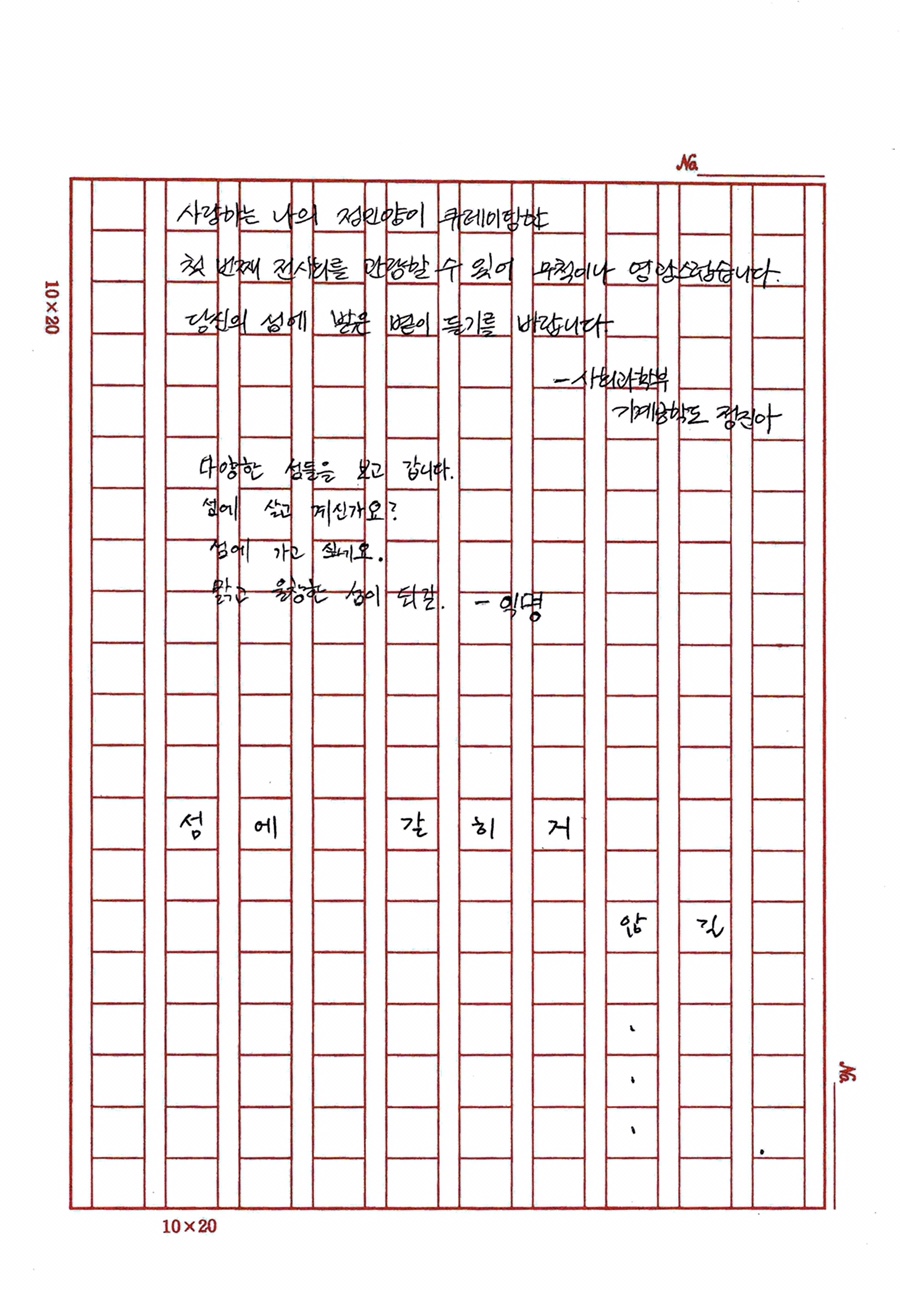 No.
10×20
사랑하는 나의 정민양이 큐레이팅한
첫 번째 전시회를 관람할 수 있어 무척이나 영광스럽습니다.
당신의 섬에 밝은 볕이 들기를 바랍니다.
-사회과학부
기계공학도 정진아
다양한 섬들을 보고 갑니다.
섬에 살고 계신가요?
섬에 가고 싶네요.
맑고 울창한 섬이 되길. - 익명
섬에 갈히거
않길
.
.
.
.
No.
10×20